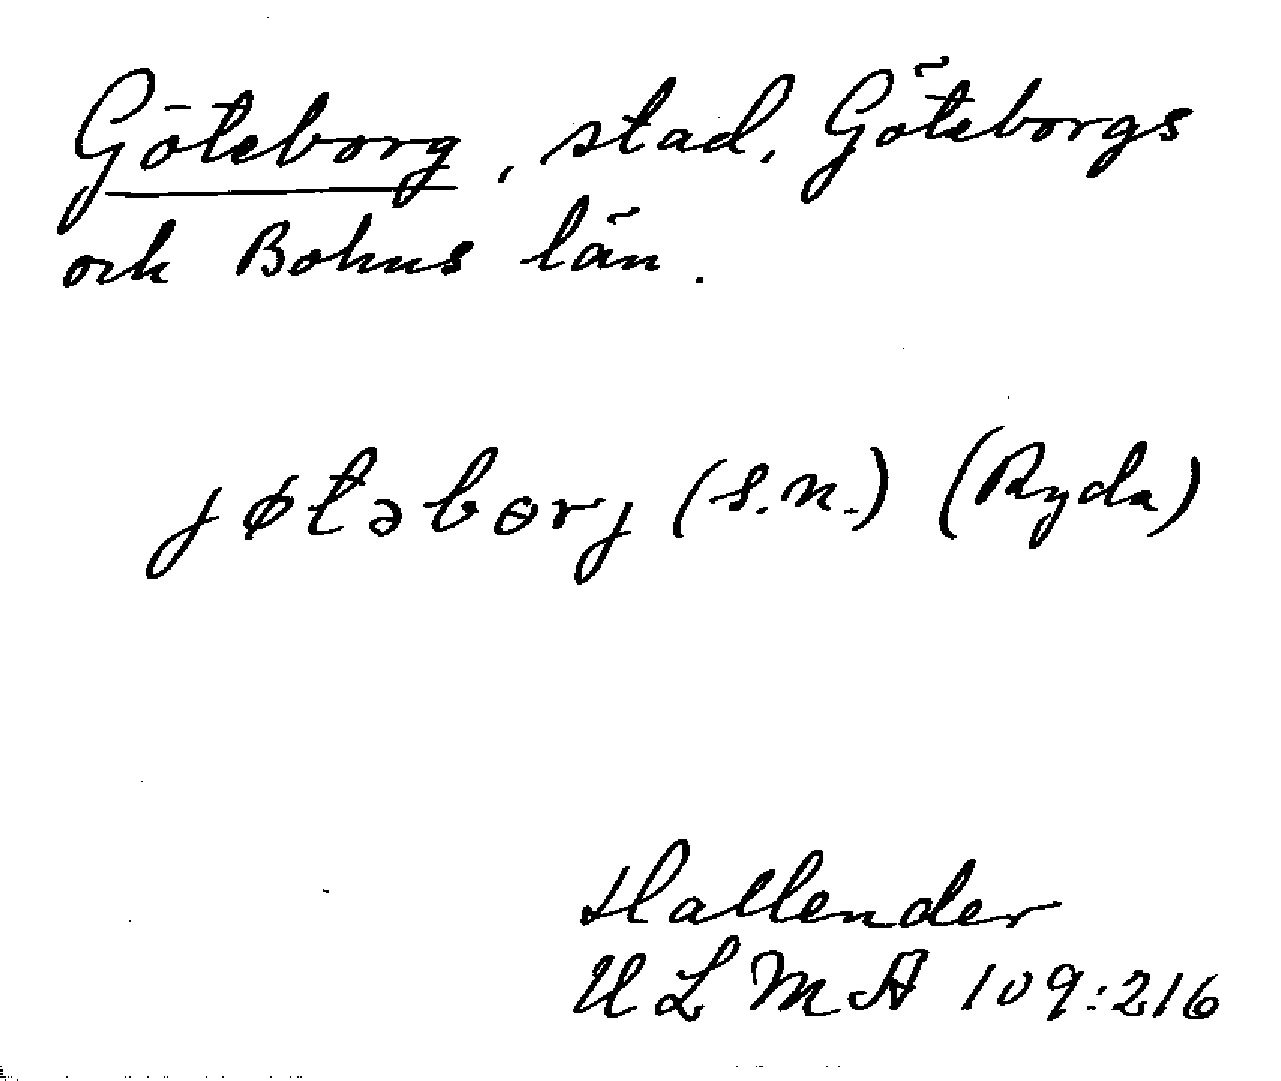 Göteborg, stad, Göteborgs
och Bohus län.
jøtəbɵrj (s.n.) (Ryda)
Hallender
ULMA 109:216